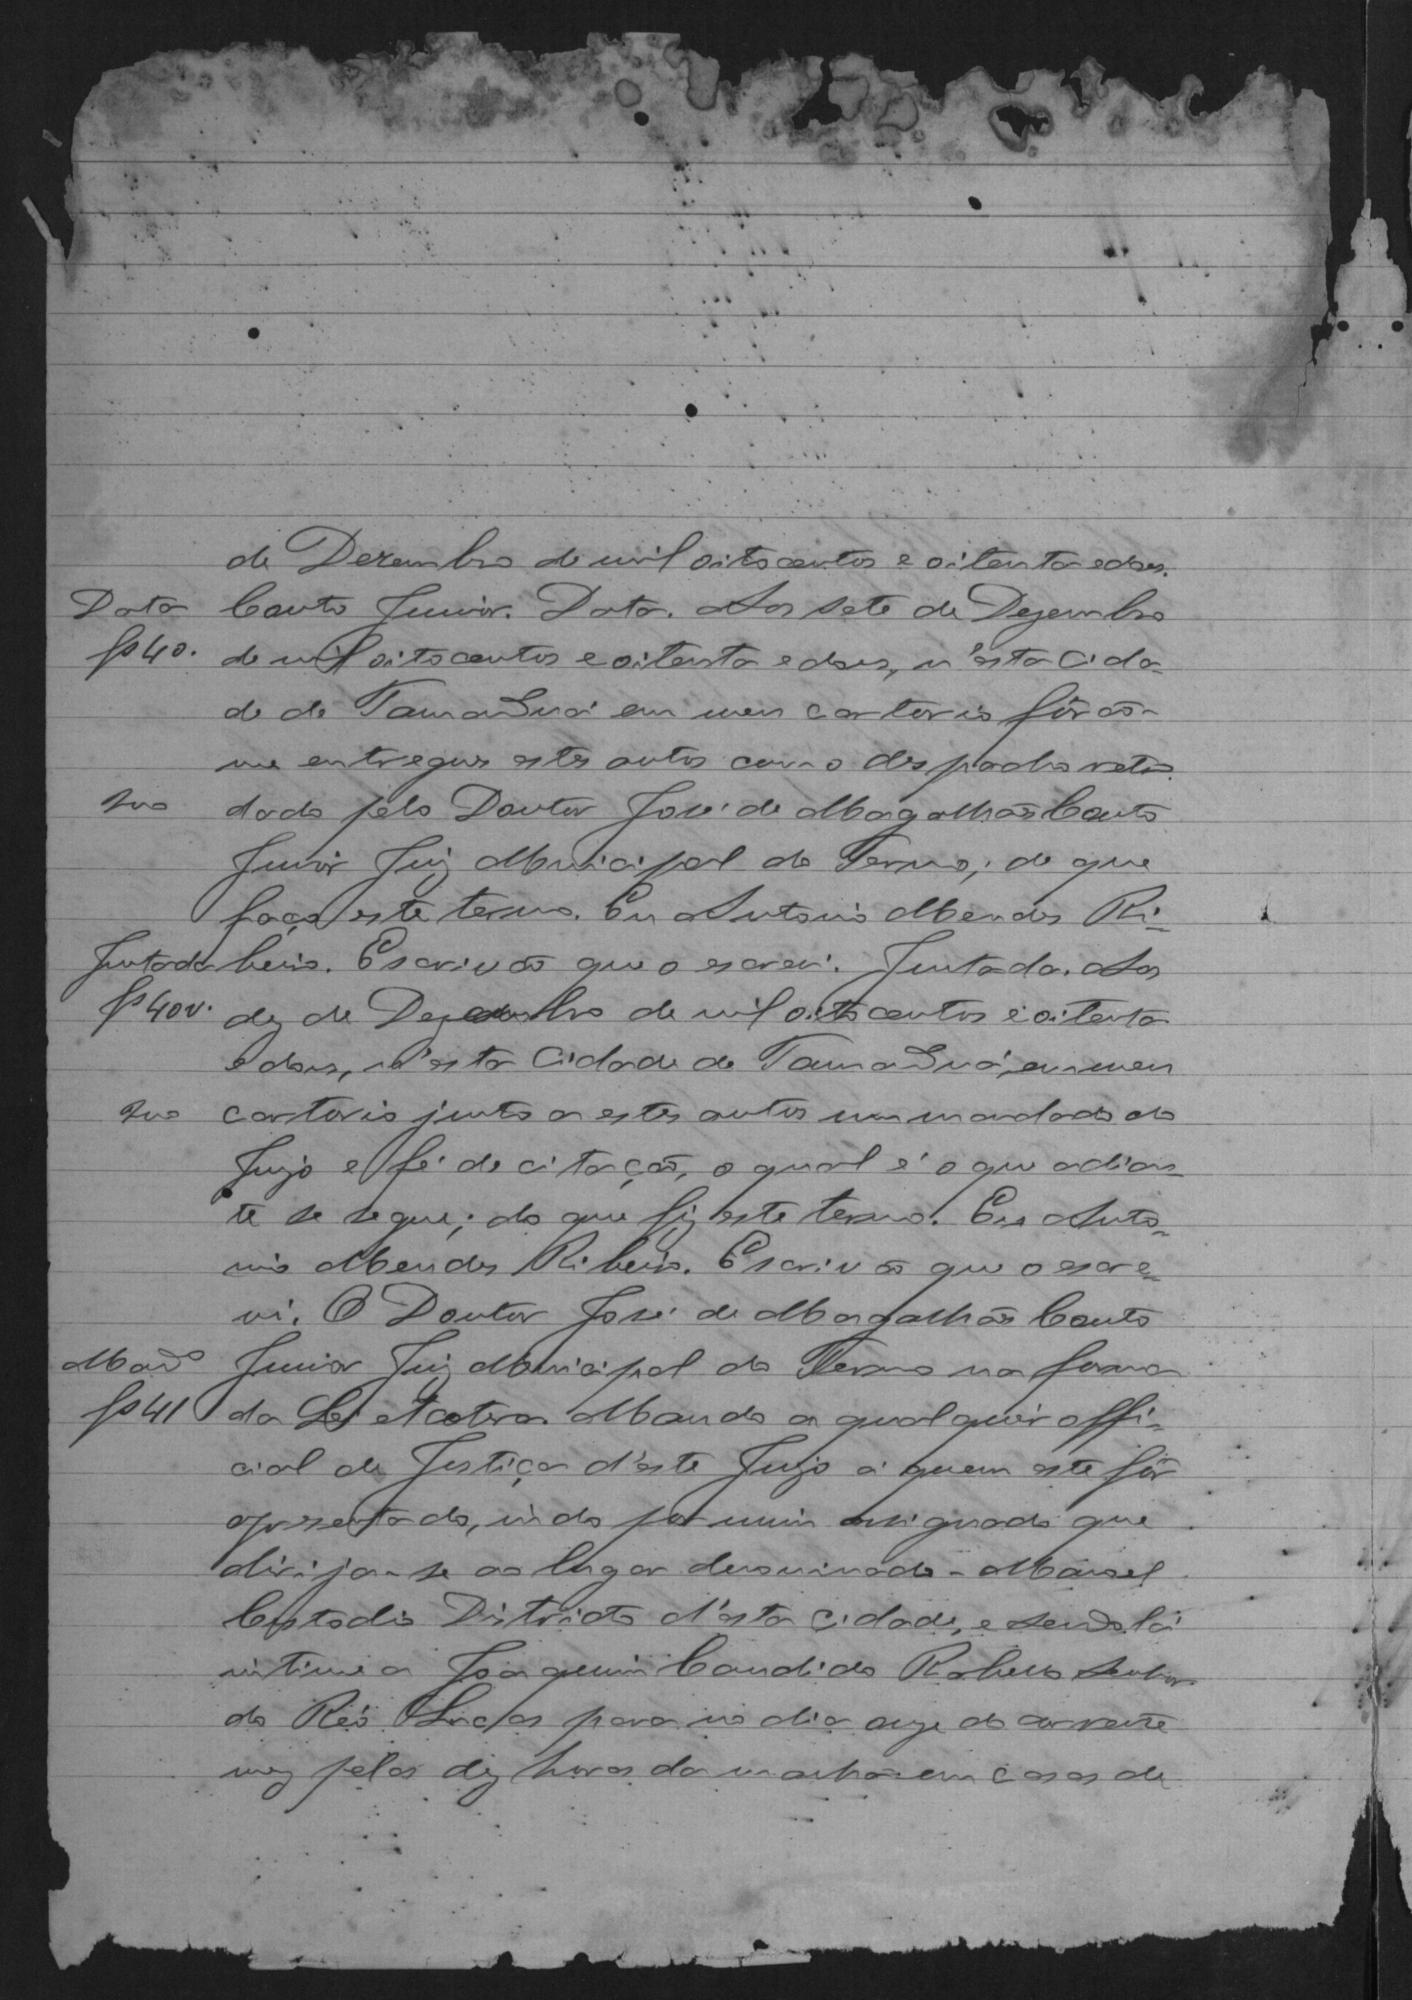 de Dezembro de mil oitocentos e oitenta e dous.
Data Couto Junior. Data. Aos sete de Dezembro
fs 40. de mil oitocentos e oitenta e dous, n'esta Cida-
de de Tamanduá em meu cartorio fôrão-
me entregues estes autos com o despacho retro
dado pelo Doutor José de Magalhães Couto
Junior Juiz Municipal do Termo; do que
faço este termo. Eu Antonio Mendes Ri-
Juntada beiro. Escrivão que o escrevi. Juntada. Aos
fs 40v. dez de Dezembro de mil oitocentos e oitenta
e dous, n'esta Cidade de Tamanduá, em meu
cartorio junto a estes autos um mandado do
Juizo e fé de citação, o qual é o que adian-
te se segue; do que fiz este termo. Eu Anto-
nio Mendes Ribeiro. Escrivão que o escre-
vi. O Doutor José de Magalhães Couto
Mando Junior Juiz Municipal do Termo na forma
fs 41 da Lei etcetera. Mando a qualquer offi-
cial de Justiça d'este Juizo a quem este fôr
apresentado, indo por mim assignado que
dirija-se ao lugar denominado - Manoel
Custodio Districto d'esta Cidade, e sendo lá
intime a Joaquim Candido Rabello Senhor
do Réo Lucas para no dia onze do corrente
mez pelas dez horas da manhã em casas de